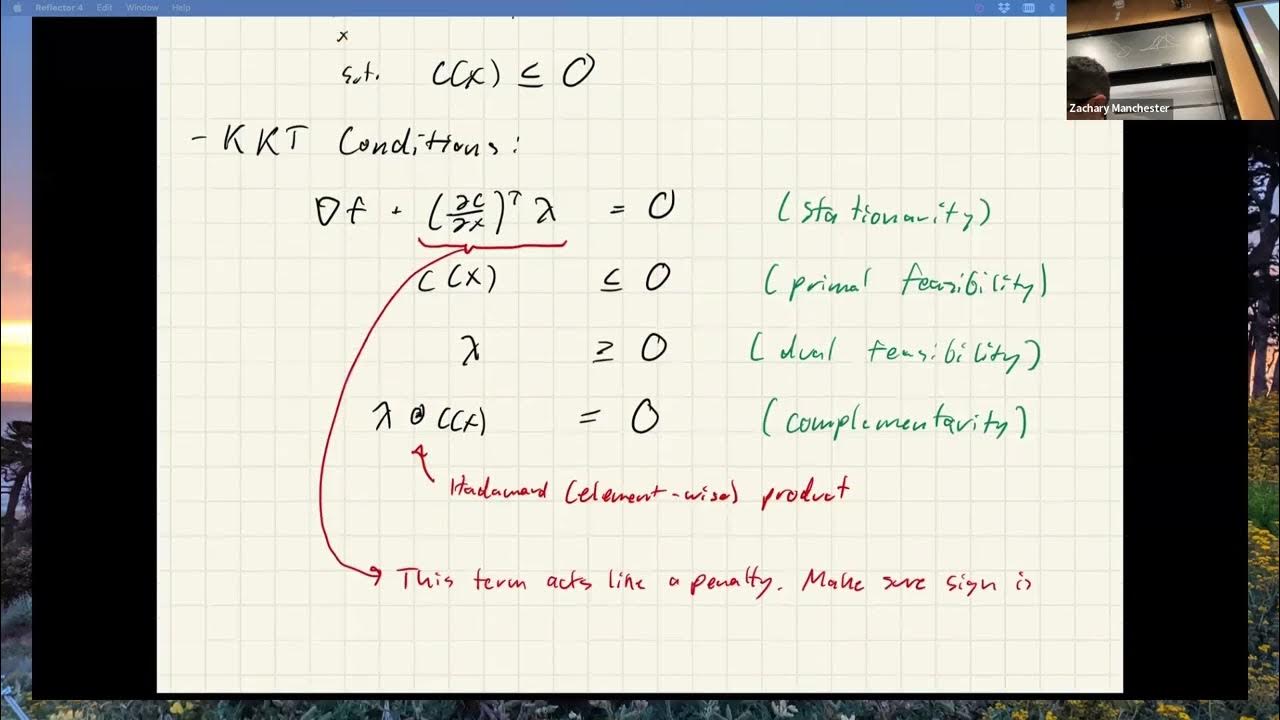 Reflector 4 Edit Window Help
x
s.t. C(x) ≤ 0
Zachary Manchester
- KKT Conditions:
∇f + (∂C/∂x)ᵀ λ = 0 (stationarity)
C(x) ≤ 0 (primal feasibility)
λ ≥ 0 (dual feasibility)
λ ⊙ C(x) = 0 (complementarity)
Hadamard (element-wise) product
This term acts like a penalty. Make sure sign is